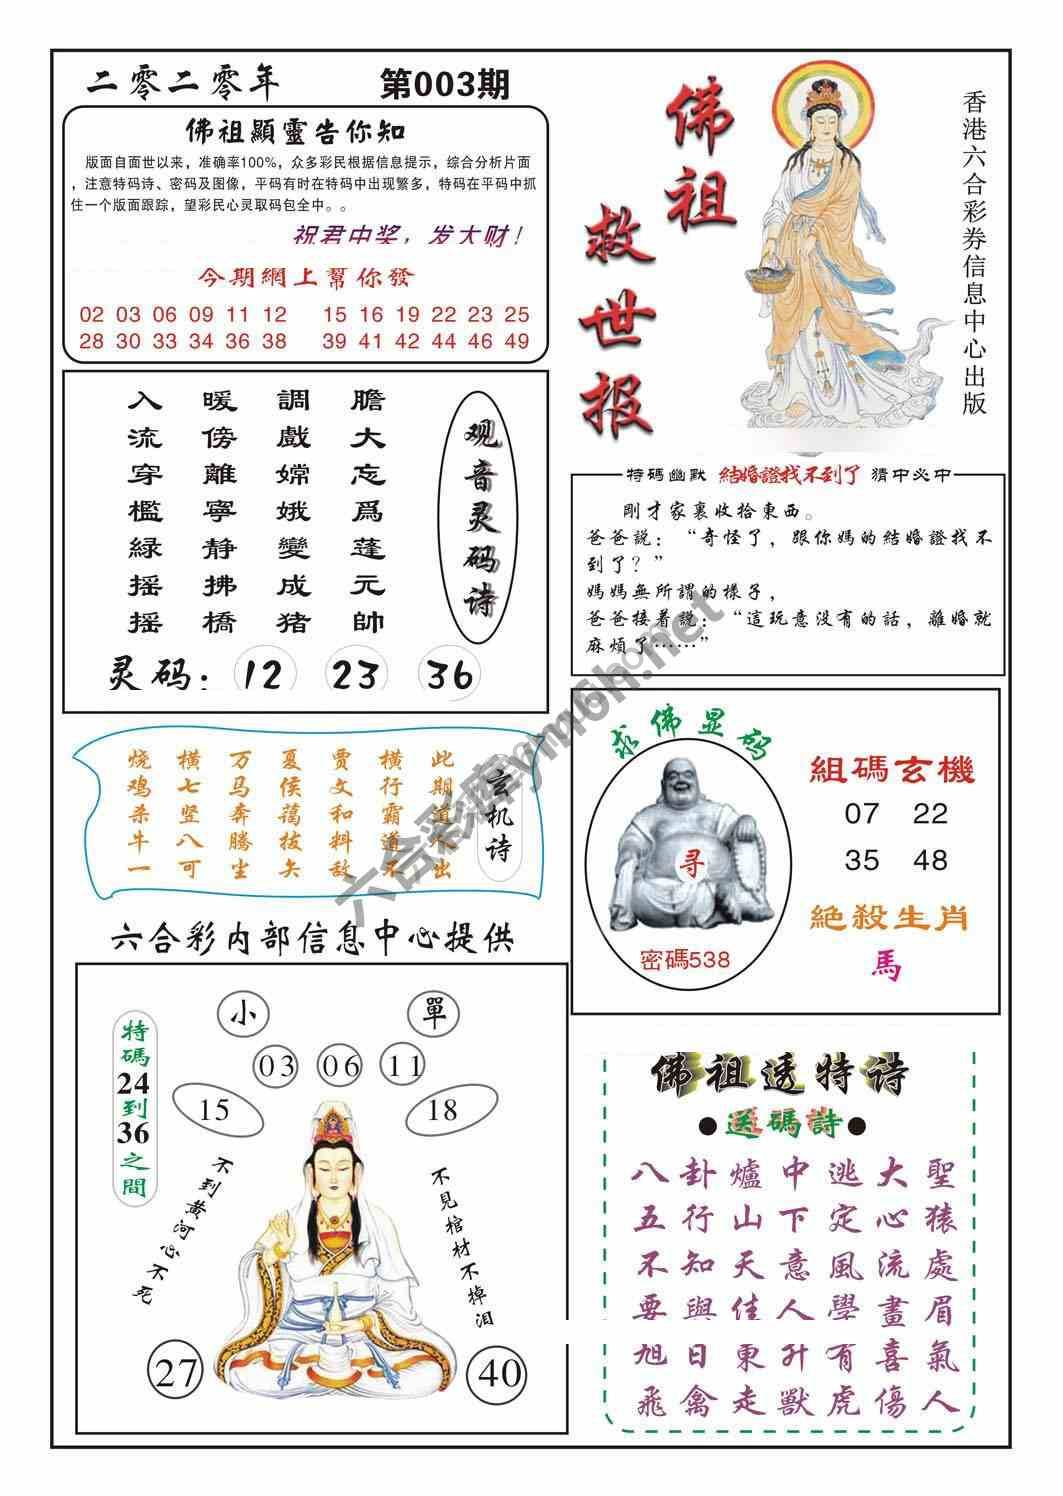 二零二零年 第003期
佛祖顯靈告你知
版面自面世以来，准确率100%，众多彩民根据信息提示，综合分析片面
，注意特码诗、密码及图像，平码有时在特码中出现繁多，特码在平码中抓
住一个版面跟踪，望彩民心灵取码包全中。。
祝君中奖，发大财！
今期網上幫你發
02 03 06 09 11 12 15 16 19 22 23 25
28 30 33 34 36 38 39 41 42 44 46 49
佛祖救世报
香港六合彩券信息中心出版
膽大忘爲蓬元帥
調戲嫦娥變成猪
暖傍離寧静拂橋
入流穿檻緑摇摇
观音灵码诗
灵码：12 23 36
特碼幽默 結婚證找不到了 猜中必中
剛才家裏收拾東西。
爸爸説：“奇怪了，跟你媽的結婚證找不
到了？”
媽媽無所謂的樣子，
爸爸接着説：“這玩意没有的話，離婚就
麻煩了……”
玄机诗
此期道不出
横行霸道不
贾文和料敌
夏侯蔼拔矢
万马奔腾尘
横七竖八可
烧鸡杀牛一
求佛显码
寻
密碼538
組碼玄機
07 22
35 48
絶殺生肖
馬
六合彩内部信息中心提供
小 單
03 06 11
15 18
特碼24到36之間
不到黄河心不死
不見棺材不掉泪
27 40
佛祖透特诗
●送碼詩●
八卦爐中逃大聖
五行山下定心猿
不知天意風流處
要與佳人學畫眉
旭日東升有喜氣
飛禽走獸虎傷人
六合彩库ym6h.net